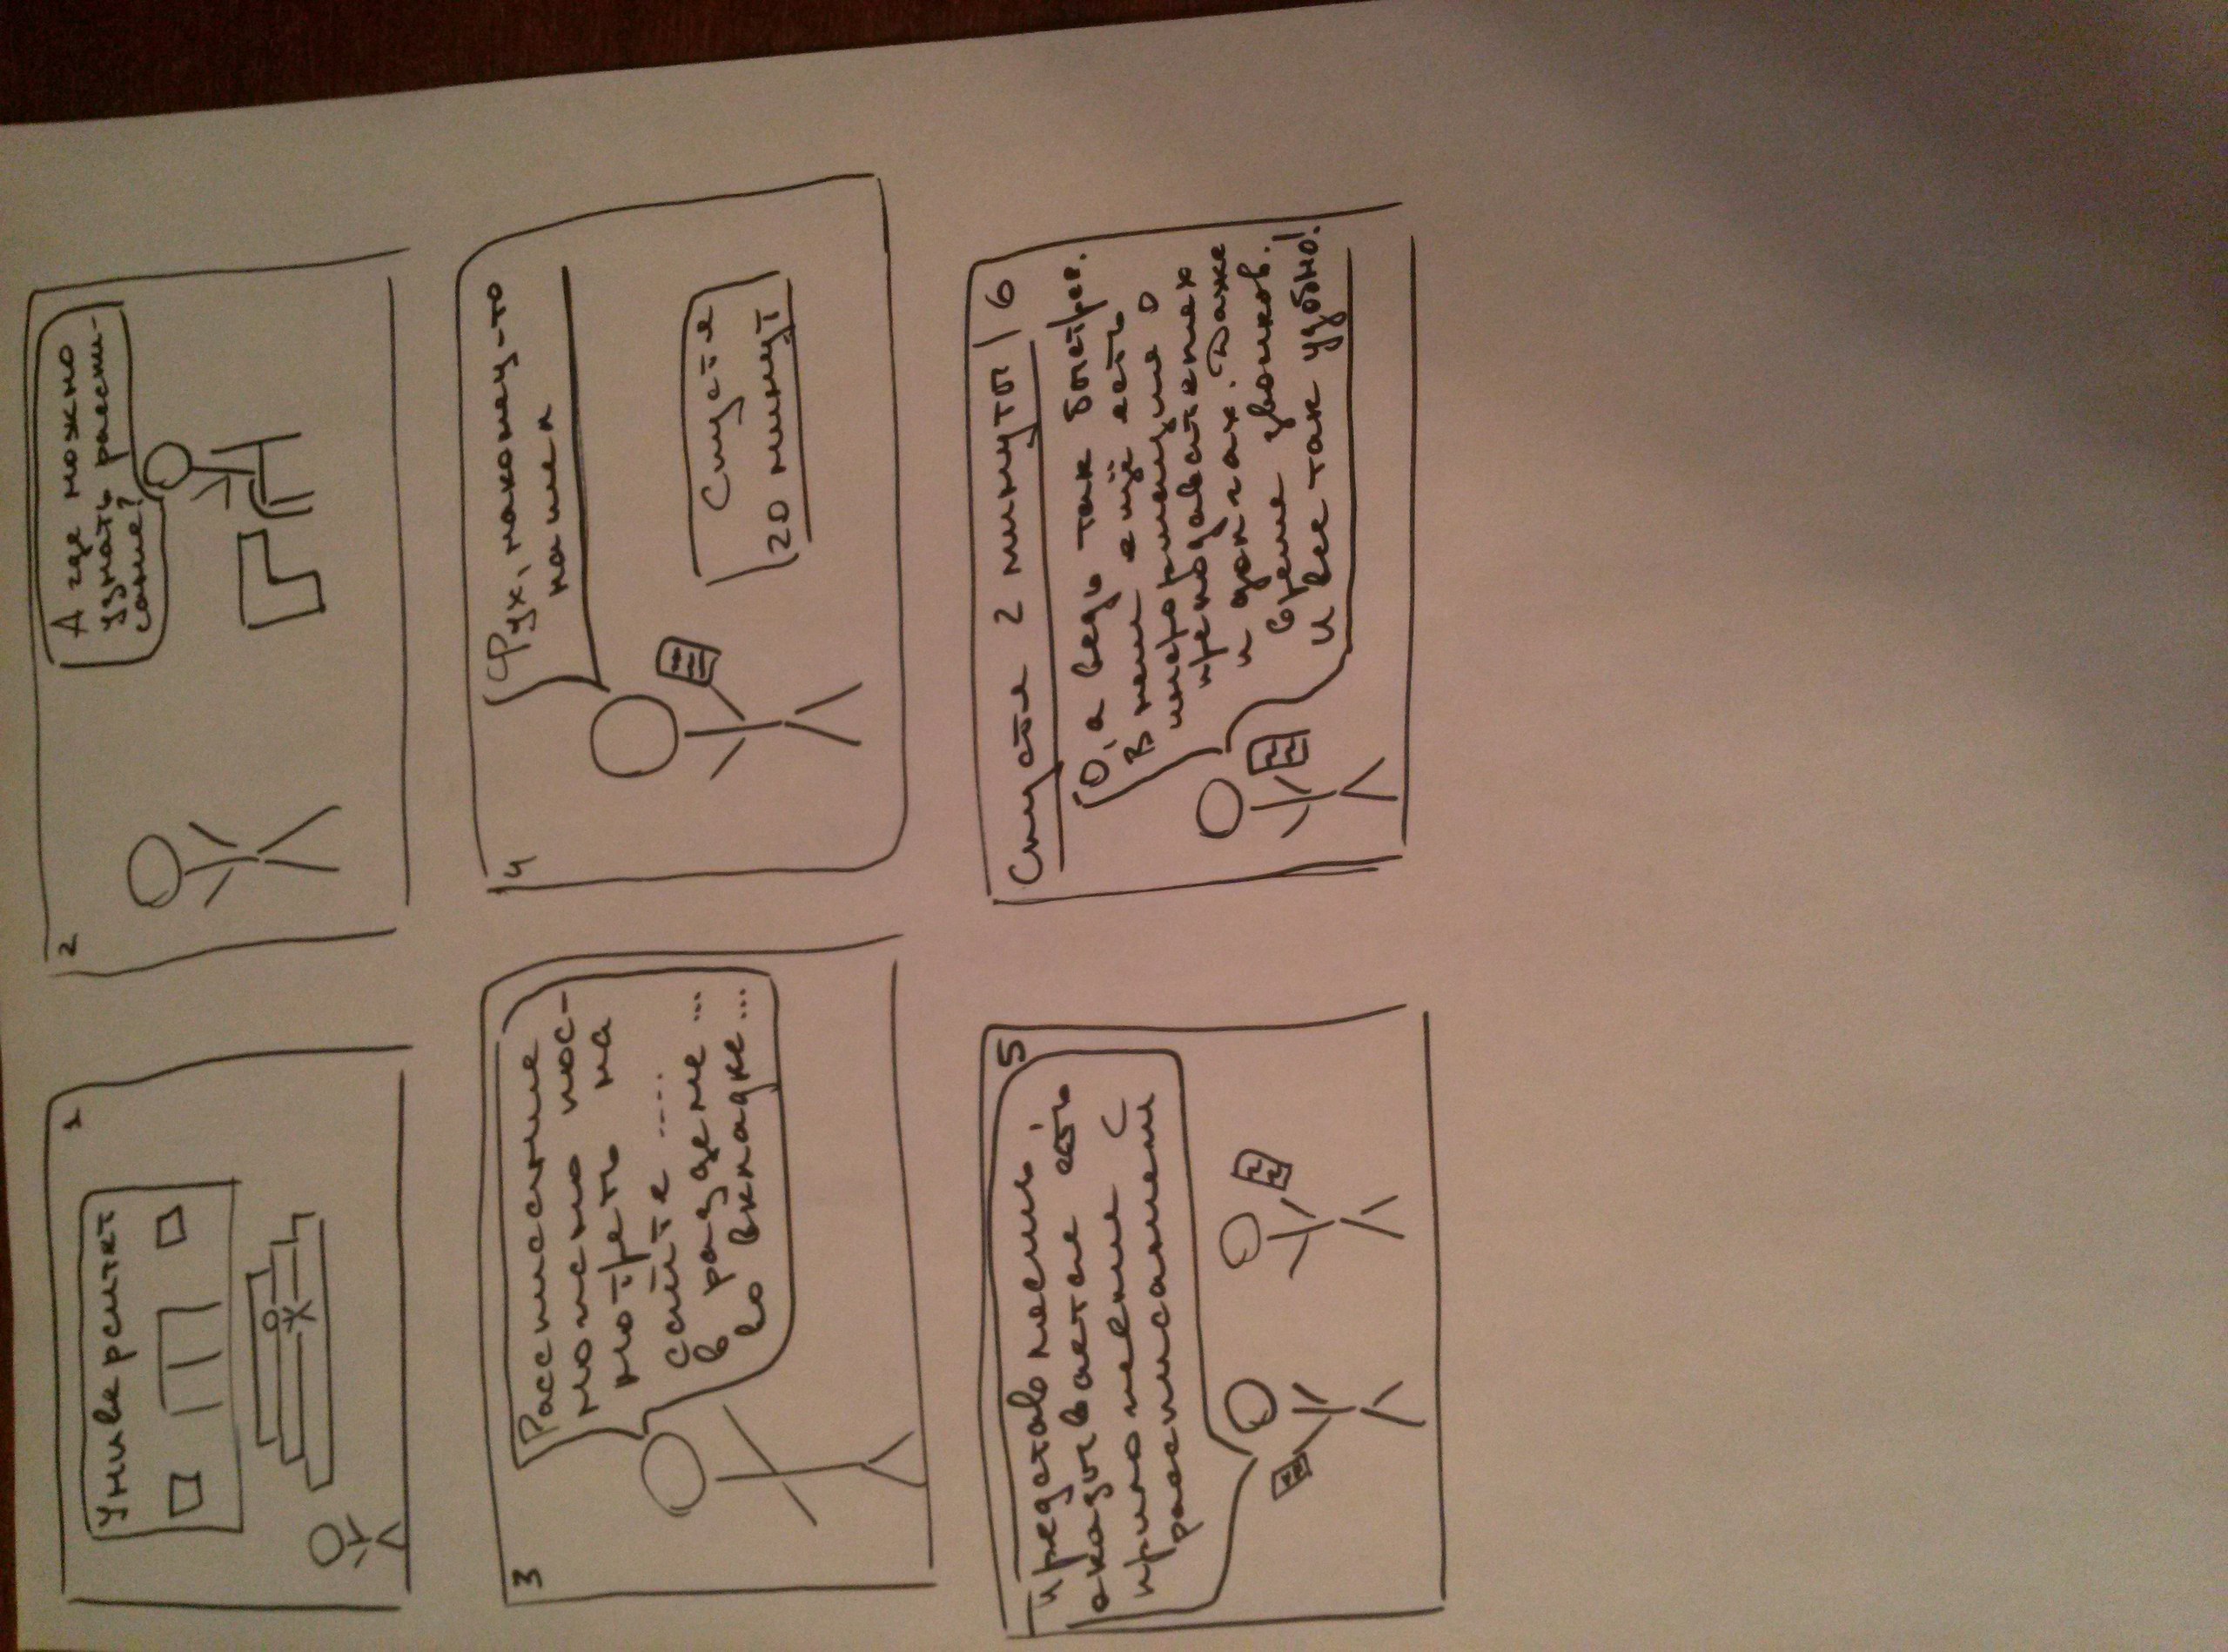 1
Университет
2
А где можно
узнать распи-
сание?
3
Рассписание
можно пос-
мотреть на
сайте ....
в разделе ...
во вкладке ...
4
Фух, наконец-то
нашел
Спустя
20 минут
5
Представляешь,
оказывается есть
приложение с
расписанием
Спустя 2 минуты
6
О, а ведь так быстрее.
В нем ещё есть
информация о
преподавателях
и долгах. Даже
время звонков.
И все так удобно!